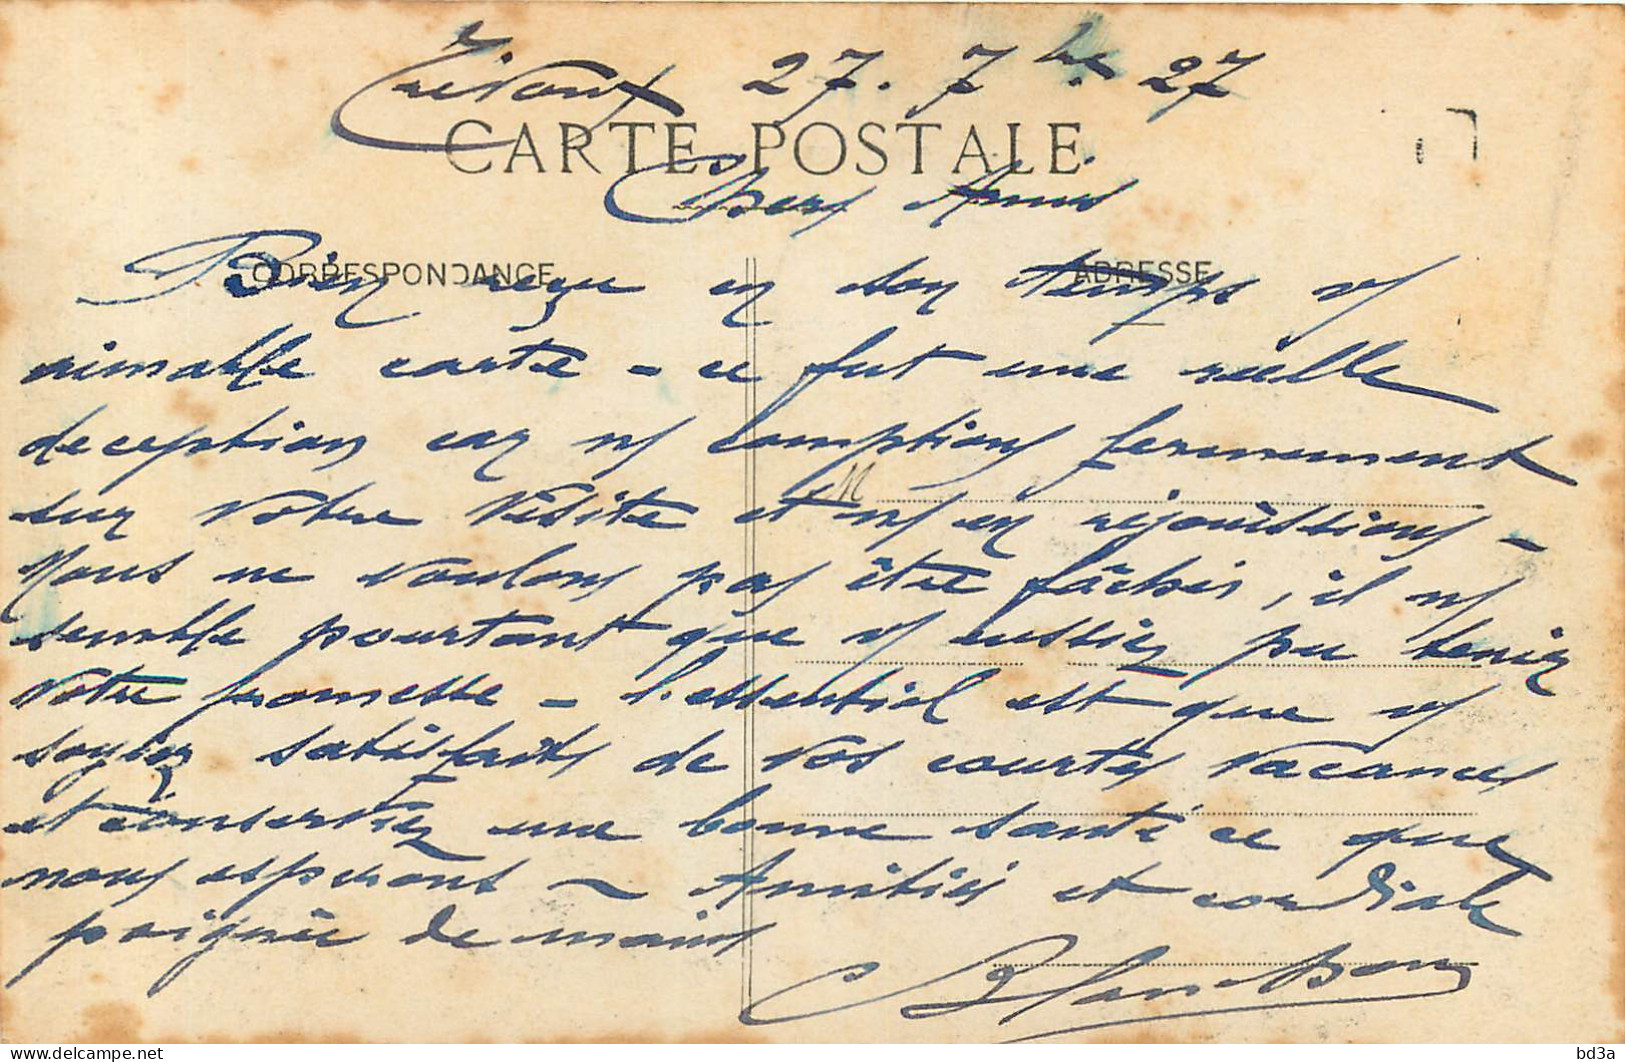 Trévoux 27. 7bre 27
CARTE POSTALE
Chers Amis
CORRESPONDANCE
ADRESSE
Bien reçu en son temps vs
aimable carte - ce fut une réelle
deception car ns comptions fermement
M
sur votre visite et ns en rejouissions -
Nous ne voulons pas être fâchés, il ns
semble pourtant que vs eussiez pu tenir
votre promesse - l'essentiel est que vs
soyiez satisfaits de vos courtes vacances
et conserviez une bonne santé ce que
nous esperons - Amitiés et cordiale
poignée de mains
Blanchon
bd3a
www.delcampe.net